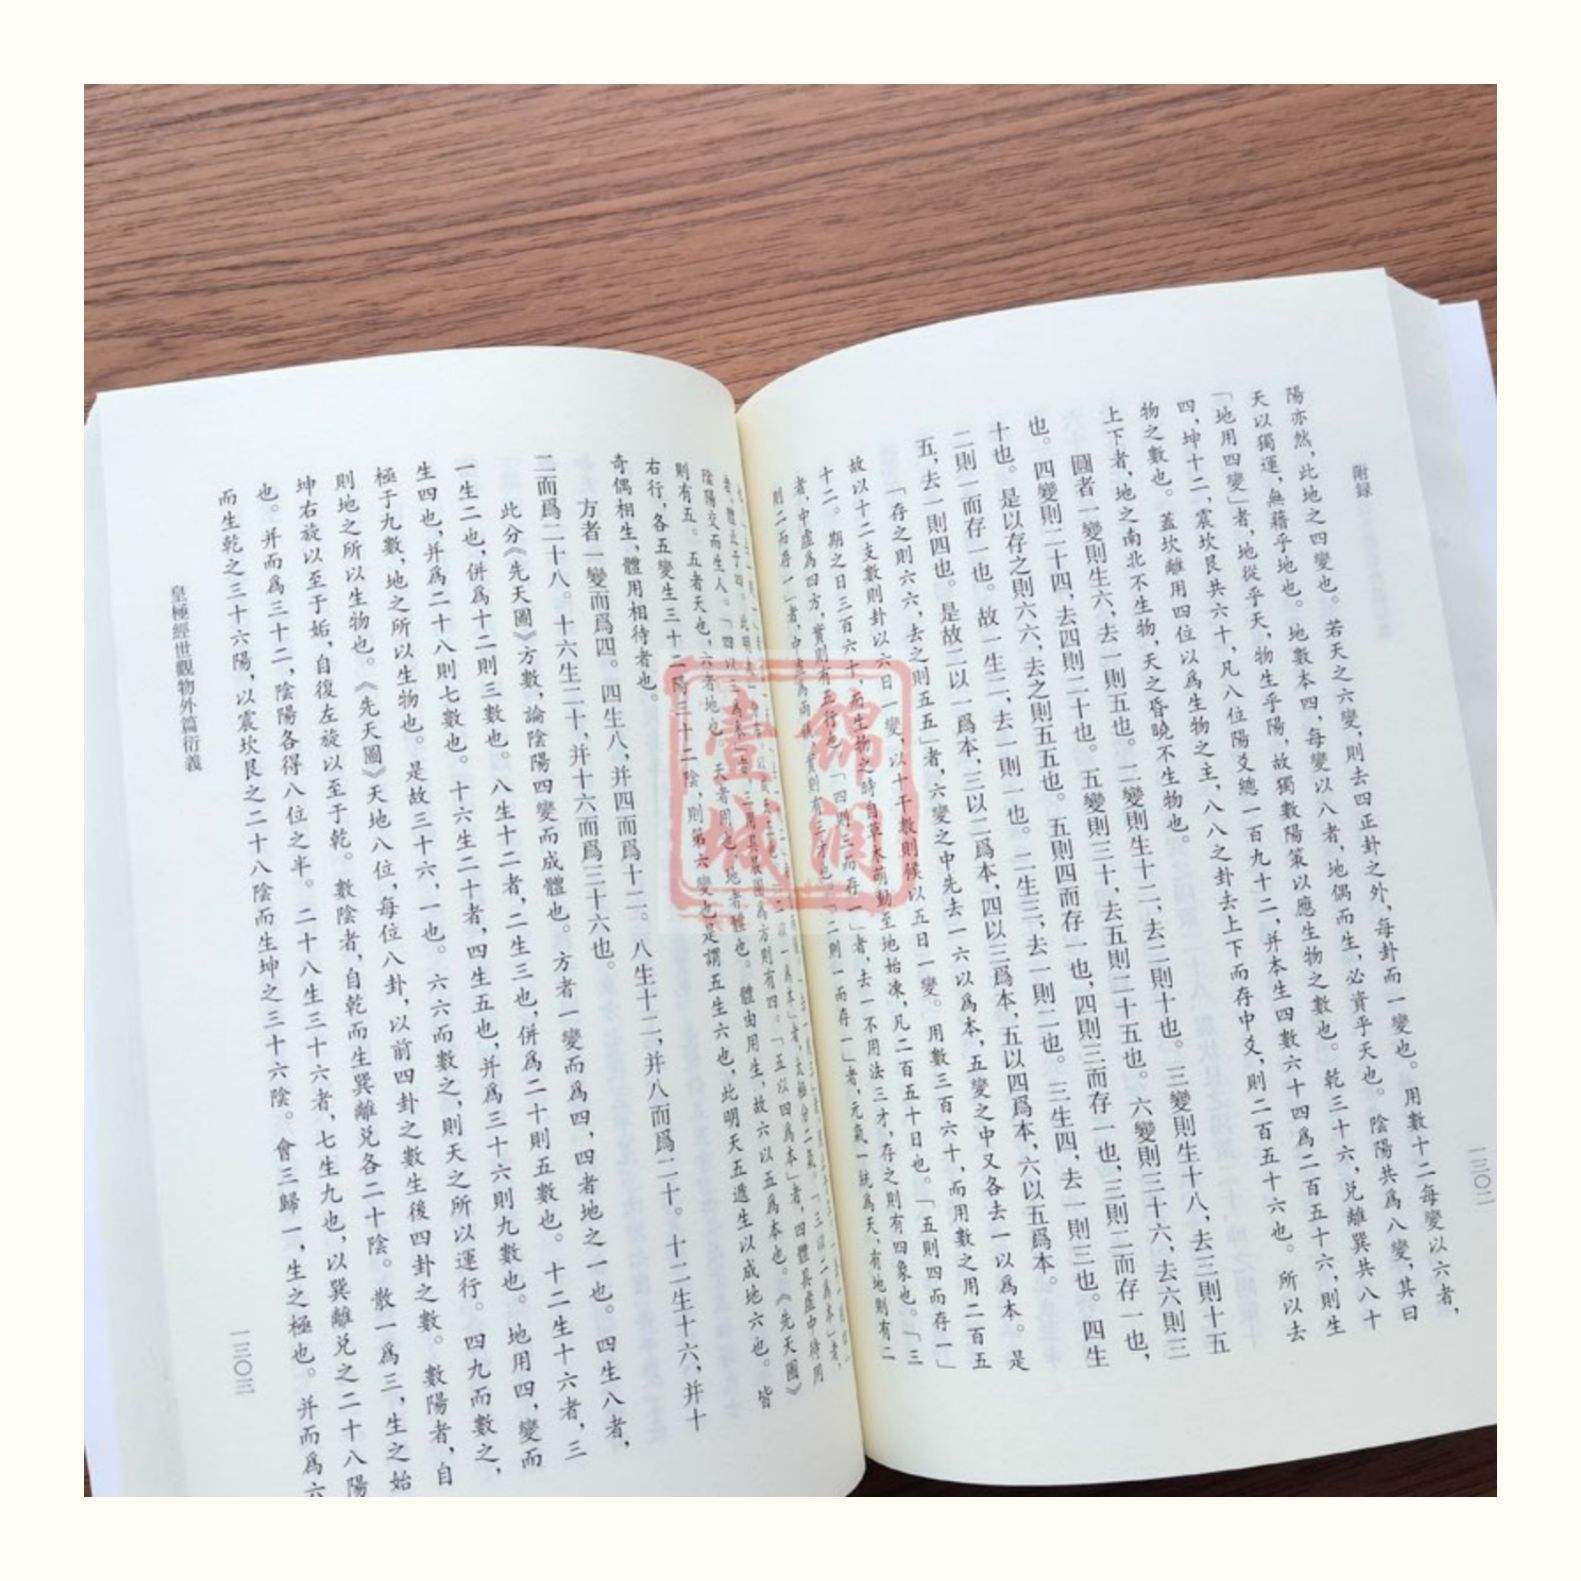 附録
陽亦然，此地之四變也。若天之六變，則去四正卦之外，每卦而一變也。用數十二每變以六者，
天以獨運，無藉乎地也。地數本四，每變以八者，地偶而生，必資乎天也。陰陽共爲八變，其曰
「地用四變」者，地從乎天，物生乎陽，故獨數陽策以應生物之數也。乾三十六，兌離巽共八十
四，坤十二，震坎艮共六十，凡八位陽爻總一百九十二，并本生四數六十四爲二百五十六，則生
物之數也。蓋坎離用四位以爲生物之主，八八之卦去上下而存中爻，則二百五十六也。所以去
上下者，地之南北不生物，天之昏曉不生物也。
圓者一變則生六，去一則五也。二變則生十二，去二則十也。三變則生十八，去三則十五
也。四變則二十四，去四則二十也。五變則三十，去五則二十五也。六變則三十六，去六則三
十也。是以存之則六六，去之則五五也。五則四而存一也，四則三而存一也，三則二而存一也，
二則一而存一也。故一生二，去一則一也。二生三，去一則二也。三生四，去一則三也。四生
五，去一則四也。是故二以一爲本，三以二爲本，四以三爲本，五以四爲本，六以五爲本。
「存之則六六，去之則五五」者，六變之中先去一六以爲本，五變之中又各去一以爲本。是
故以十二支數則卦以六日一變，以十干數則候以五日一變。用數三百六十，而用數之用二百五
十二。期之日三百六十，而生物之時自草木萌動至地始凍，凡二百五十日也。「五則四而存一」
者，中虛爲四方，實則有五行也。「四則三而存一」者，去一不用法三才，存之則有四象也。「三
則二而存一」者，中虛爲兩儀，實則有三才也。「二則一而存一」者，元氣一統爲天，有地則有二
陰陽交而生人。「四以三爲本」者，三用具
則有五。五者天也，六者地也。天者用也，地者體也。體由用生，故六以五爲本也。《先天圖》
右行，各五變生三十二陽三十二陰，則第六變也，是謂五生六也，此明天五遞生以成地六也。皆
奇偶相生，體用相待者也。
方者一變而爲四。四生八，并四而爲十二。八生十二，并八而爲二十。十二生十六，并十
二而爲二十八。十六生二十，并十六而爲三十六也。
此分《先天圖》方數，論陰陽四變而成體也。方者一變而爲四，四者地之一也。四生八者，
一生二也，併爲十二則三數也。八生十二者，二生三也，併爲二十則五數也。十二生十六者，三
生四也，并爲二十八則七數也。十六生二十者，四生五也，并爲三十六則九數也。地用四，變而
極于九數，地之所以生物也。是故三十六，一也。六六而數之，則天之所以運行。四九而數之，
則地之所以生物也。《先天圖》天地八位，每位八卦，以前四卦之數生後四卦之數。數陽者，自
坤右旋以至于姤，自復左旋以至于乾。數陰者，自乾而生巽離兌各二十陰。散一爲三，生之始
也。并而爲三十二，陰陽各得八位之半。二十八生三十六者，七生九也，以巽離兌之二十八陽
而生乾之三十六陽，以震坎艮之二十八陰而生坤之三十六陰。會三歸一，生之極也。并而爲六
皇極經世觀物外篇衍義
一三〇二
一三〇三
錦潤
壹城